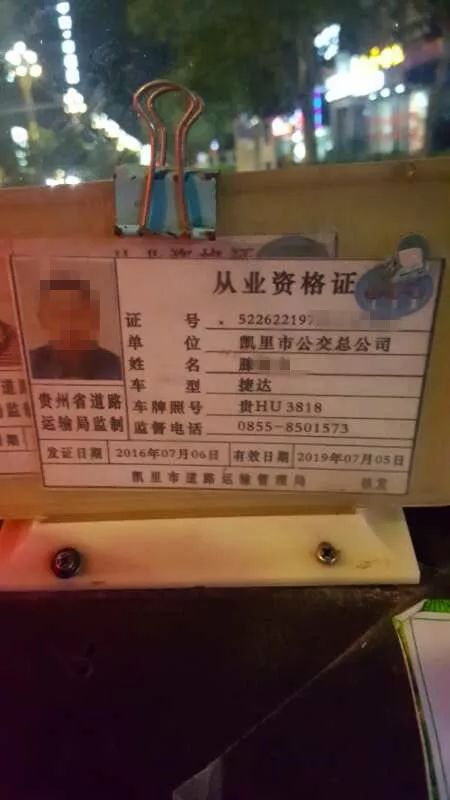 从业资格证
从业资格证
证 号 522622197
单 位 凯里市公交总公司
姓 名 滕
车 型 捷达
车牌照号 贵HU3818
监督电话 0855-8501573
贵州省道路
运输局监制
发证日期 2016年07月06日 有效日期 2019年07月05日
凯里市道路运输管理局 核发
道路
监制
日期